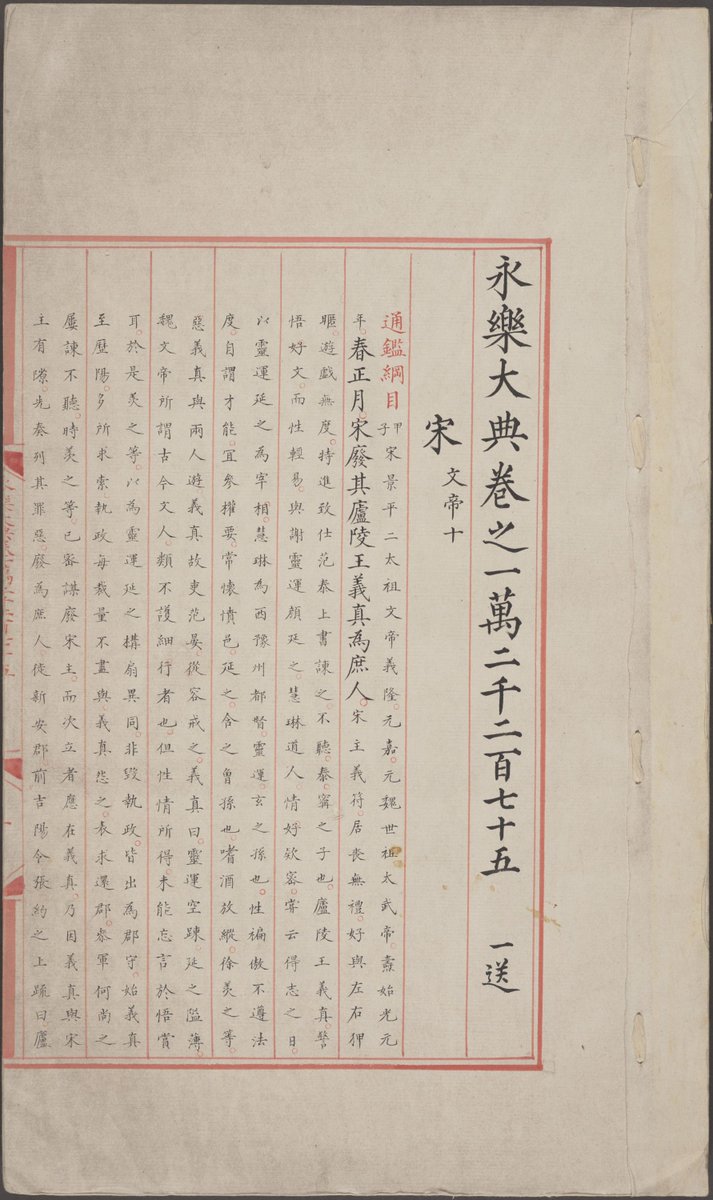 永樂大典卷之一萬二千二百七十五 一送
宋 文帝十
通鑑綱目 甲子 宋景平二太祖文帝義隆元嘉元魏世祖太武帝燾始光元
年春正月宋廢其廬陵王義真為庶人宋主義符居喪無禮好與左右狎
暱遊戲無度特進致仕范泰上書諫之不聽泰甯之子也廬陵王義真警
悟好文而性輕易與謝靈運顔延之慧琳道人情好欵密嘗云得志之日
以靈運延之為宰相慧琳為西豫州都督靈運玄之孫也性褊傲不遵法
度自謂才能宜參權要常懷憤邑延之含之曾孫也嗜酒放縱徐羨之等
惡義真與兩人遊義真故吏范晏從容戒之義真曰靈運空踈延之隘薄
魏文帝所謂古今文人類不護細行者也但性情所得未能忘言於悟賞
耳於是羨之等以為靈運延之搆扇異同非毀執政皆出為郡守始義真
至歷陽多所求索執政每裁量不盡與義真怨之表求還郡參軍何尚之
屢諫不聽時羨之等已密謀廢宋主而次立者應在義真乃因義真與宋
主有隙先奏列其罪惡廢為庶人徙新安郡前吉陽令張約之上疏曰廬